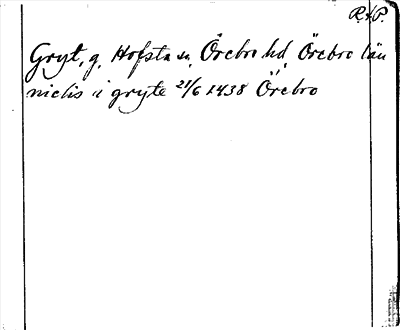 R.&P.
Gryt, g. Hofsta sn, Örebro hd, Örebro län
nielis i gryte 21/6 1438 Örebro